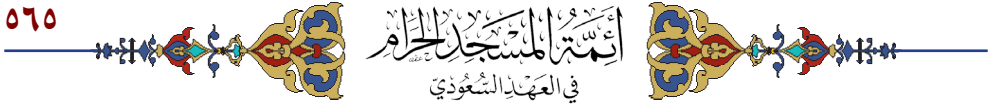 ٥٦٥
أَئِمَّةُ المَسْجِدِ الحَرَامِ
في العَهْدِ السُّعُودِيّ